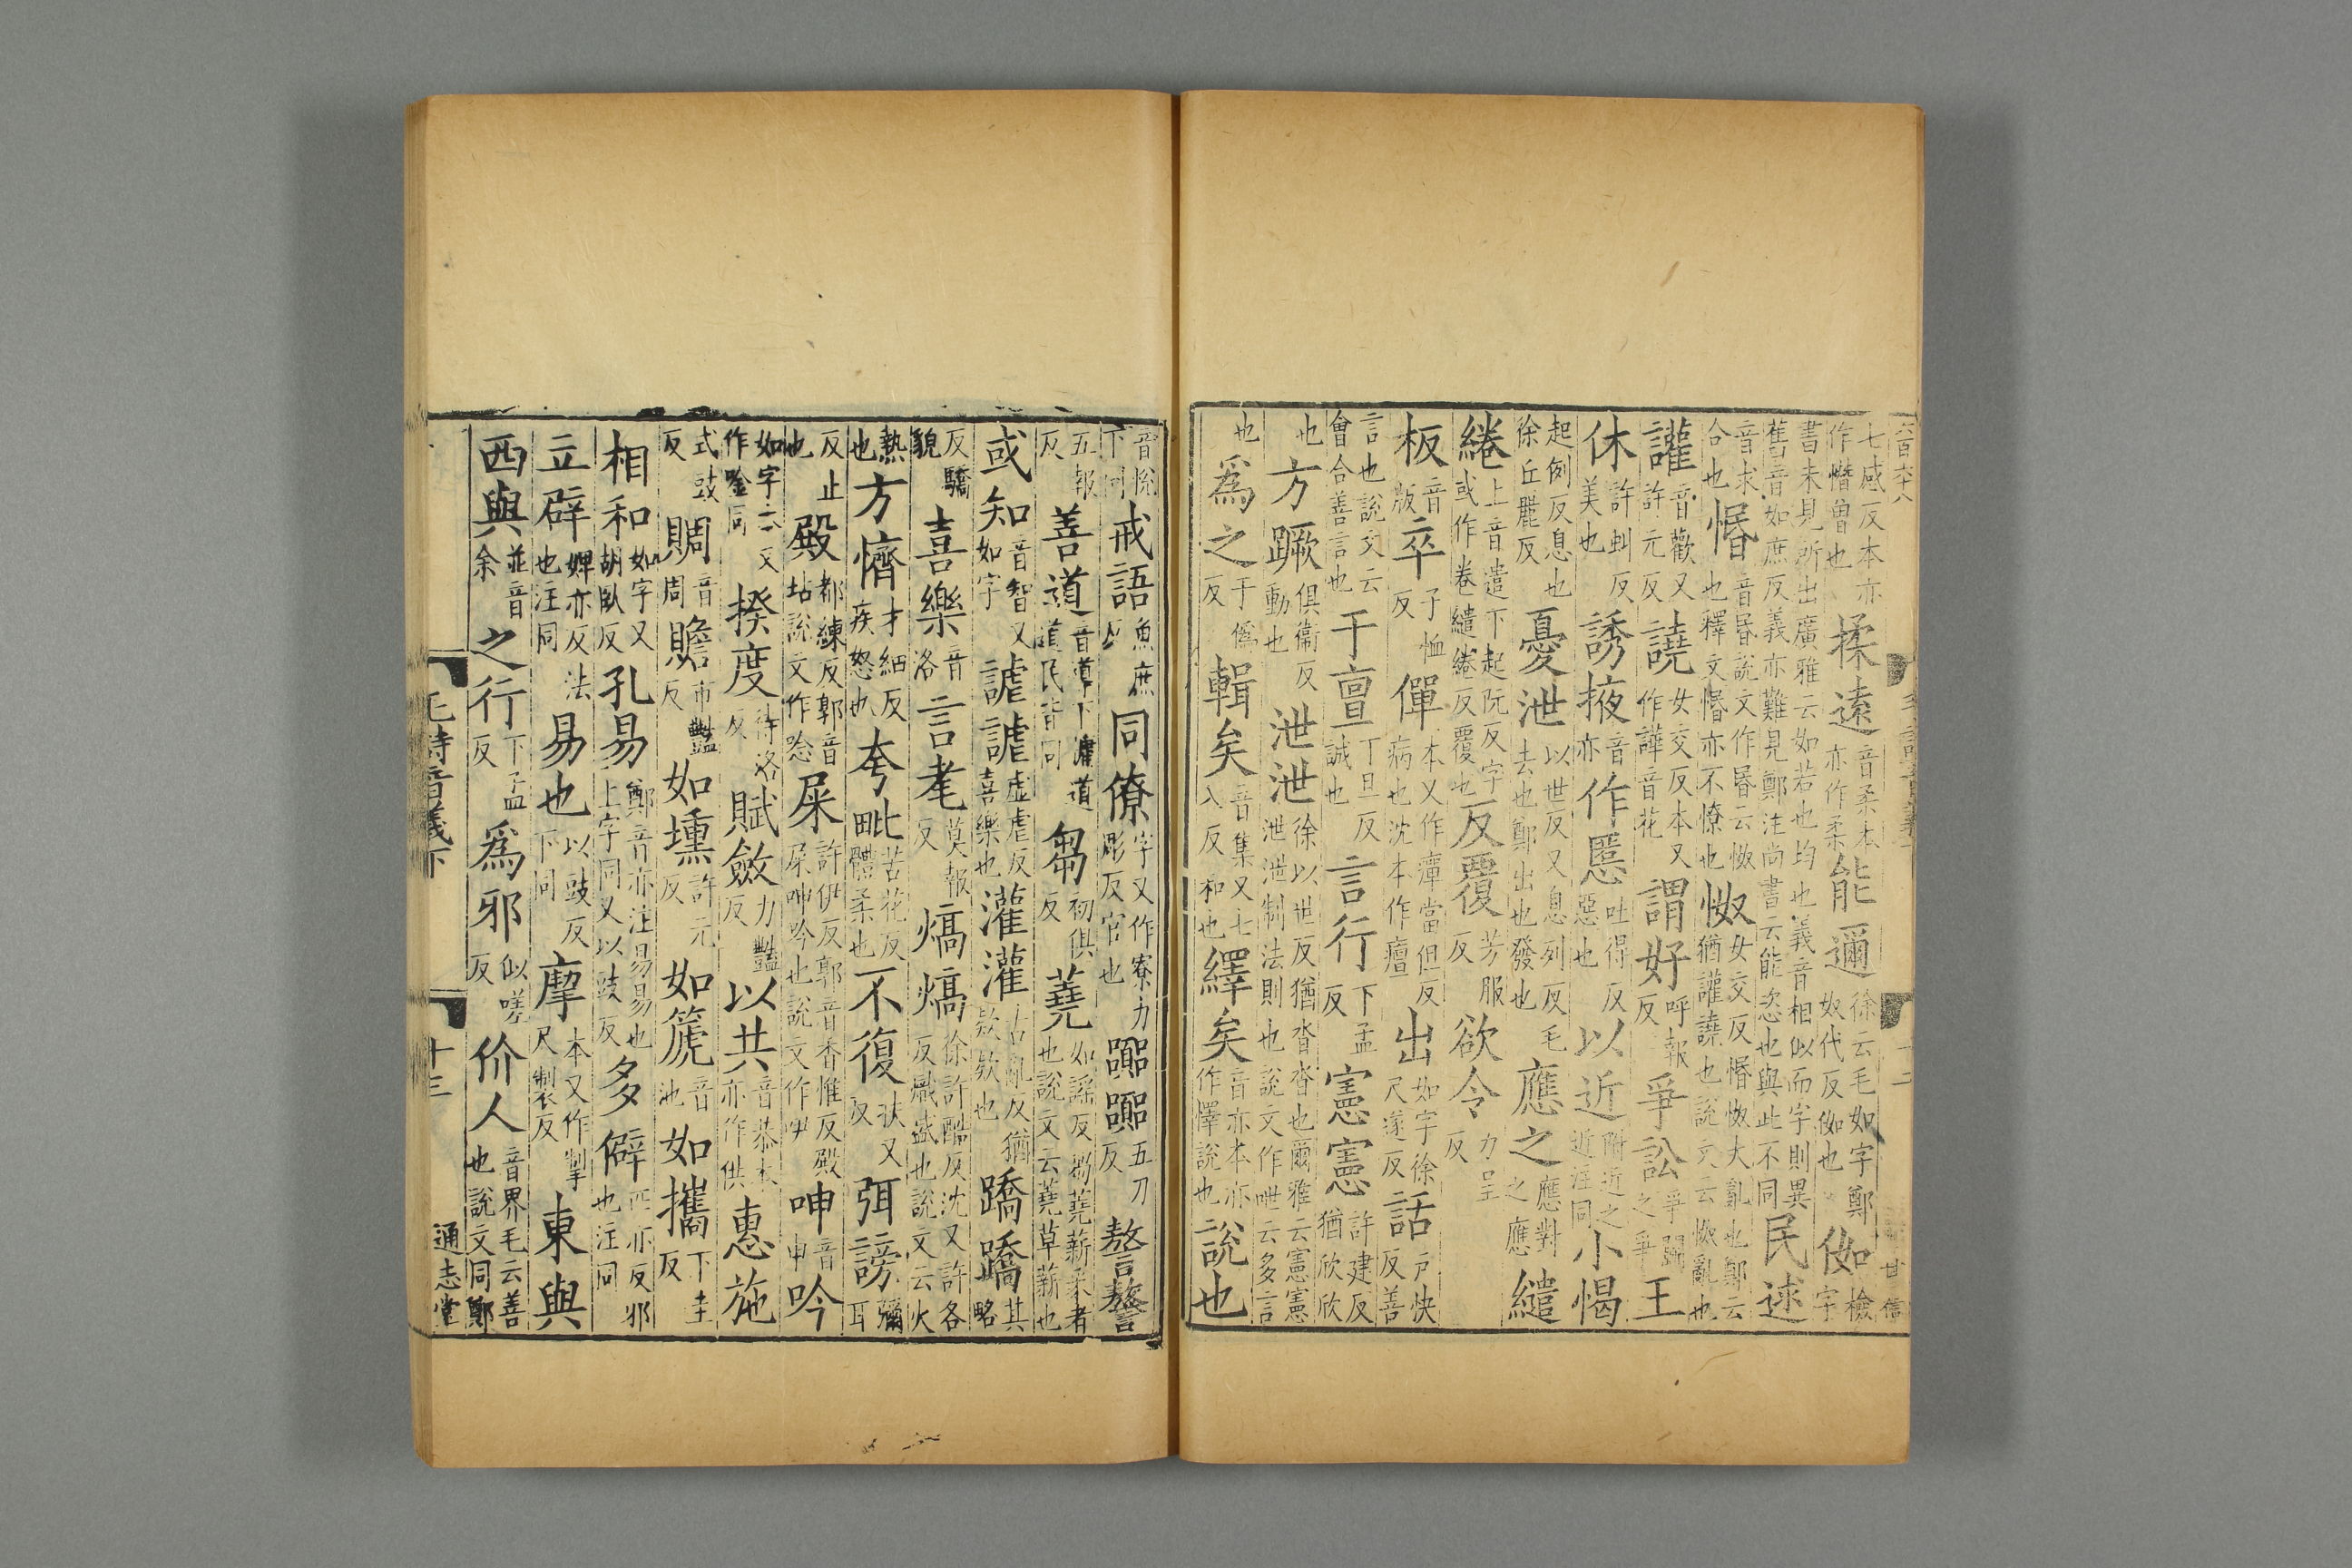 六百六十八
七感反本亦作憯曾也揉遠音柔本亦作柔能邇徐云毛如字鄭奴代反伽也伽檢字
書未見所出廣雅云如若也均也義音相似而字則異舊音如庶反義亦難見鄭注尚書云能恣也與此不同民逑
音求合也惛音昬說文作昬云怓也釋文惛亦不憭也怓女交反惛怓大亂也鄭云猶讙譊也說文云怓亂也
讙音歡又許元反譊女交反本又作譁音花謂好呼報反爭訟爭鬬之爭王
休許虯反美也誘掖音亦作慝吐得反惡也以近附近之近注同小愒
起例反息也徐丘麗反憂泄以世反又息列反毛去也鄭出也發也應之應對之應繾
綣上音遣下起阮反字或作卷繾綣反覆也反覆芳服反欲令力呈反
板音版卒子恤反僤本又作癉當但反病也沈本作癉出如字徐尺遂反話戶快反善
言也說文云會合善言也于亶丁旦反誠也言行下孟反憲憲許建反猶欣欣
也方蹶俱衞反動也泄泄徐以世反猶沓沓也爾雅云憲憲泄泄制法則也說文作呭云多言
也爲之于僞反輯矣音集又七入反和也繹矣音亦本亦作懌說也說也
音悅下同戒語魚庶反同僚字又作寮力彫反官也嚻嚻五刀反警警
五報反善道音導下道民皆同芻初俱反蕘如謠反芻蕘薪采者也說文云蕘草薪也
或知音智又如字謔謔虛虐反喜樂也灌灌古亂反猶款款也蹻蹻其略
反驕貌喜樂音洛言耄莫報反熇熇徐許酷反沈又許各反熾盛也說文云火
熱也方懠才細反疾怒也夸毗苦花反體柔也不復扶又反弭謗彌耳
反止也殿都練反郭音坫說文作唸屎許伊反郭音香惟反殿屎呻吟也說文作吚呻音申吟
如字又作唫同揆度待洛反賦斂力豔反以共音恭本亦作供惠施
式豉反賙音周贍市豔反如壎許元反如篪音池如攜下圭反
相和如字又胡臥反孔易鄭音亦注易易也上字同又以豉反多僻匹亦反邪也注同
立辟婢亦反法也注同易也以豉反下同摩本又作掣尺製反東與
西與並音余之行下孟反爲邪似嗟反价人音界毛云善也說文同鄭
毛詩音義下 十三 通志堂